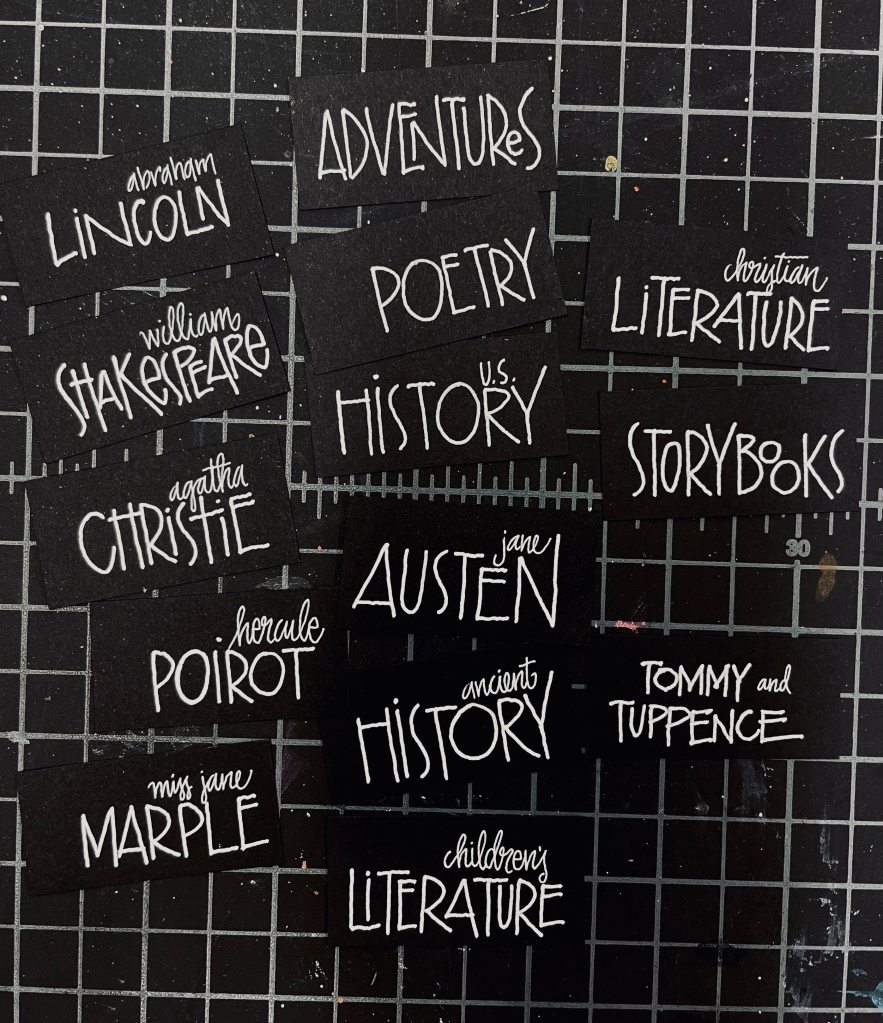 ADVENTUReS
abraham
LiNCOLN
POETRY
christian
LiTERATURE
william
SHAKeSPEARE
U.S.
HiSTORY
STORYBooKS
agatha
CHRiSTiE
30
jane
AUSTEN
hercule
POiROT
ancient
HiSTORY
TOMMY and
TUPPENCE
miss jane
MARPLE
children's
LiTERATURE